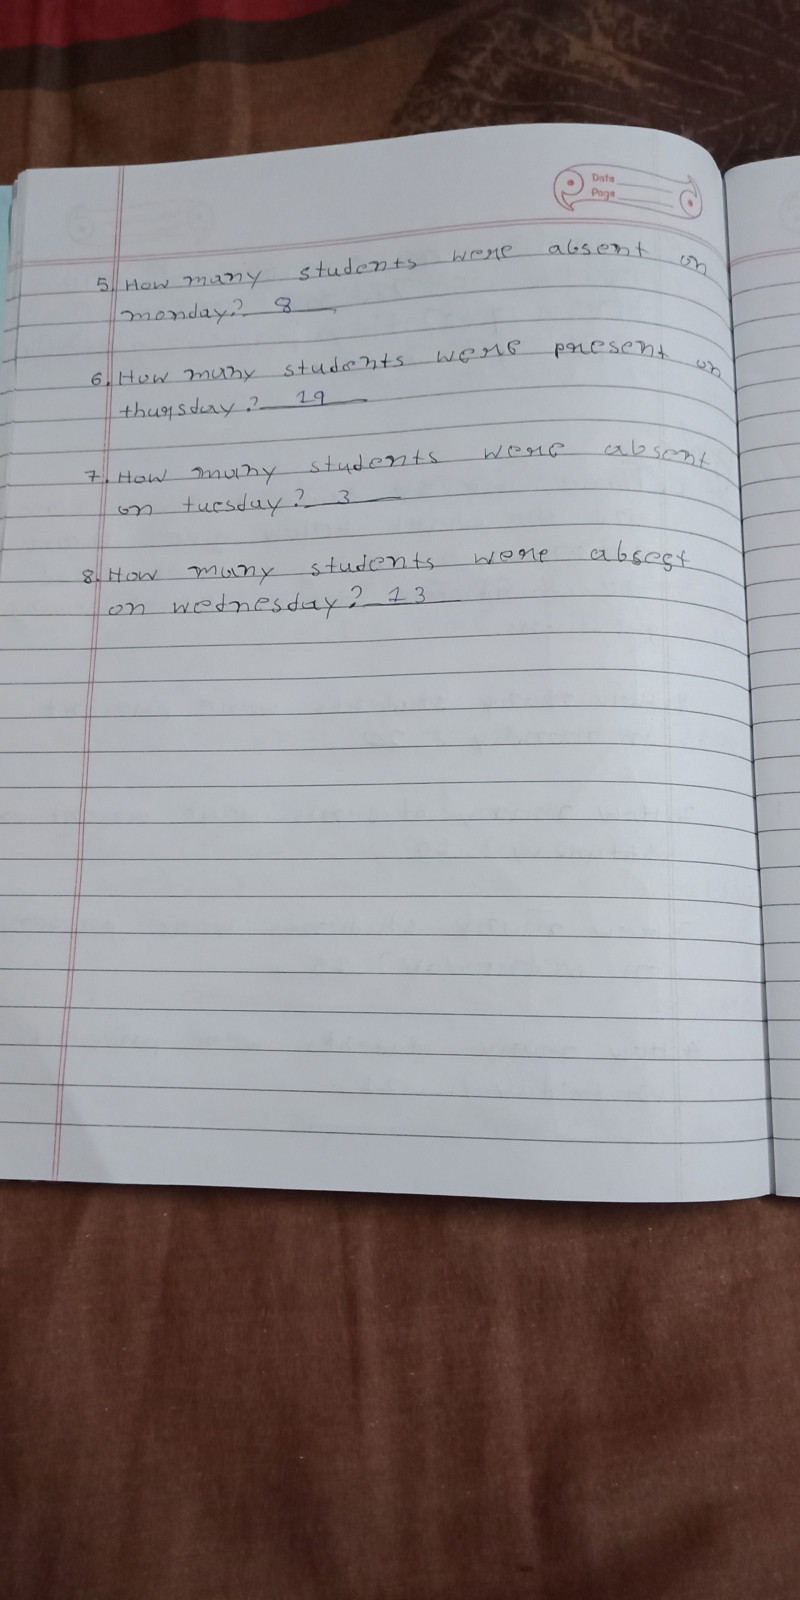 Date
Page
5. How many students were absent on
monday? 8
6. How many students were present on
thursday? 19
7. How many students were absent
on tuesday? 3
8. How many students were absest
on wednesday? 13